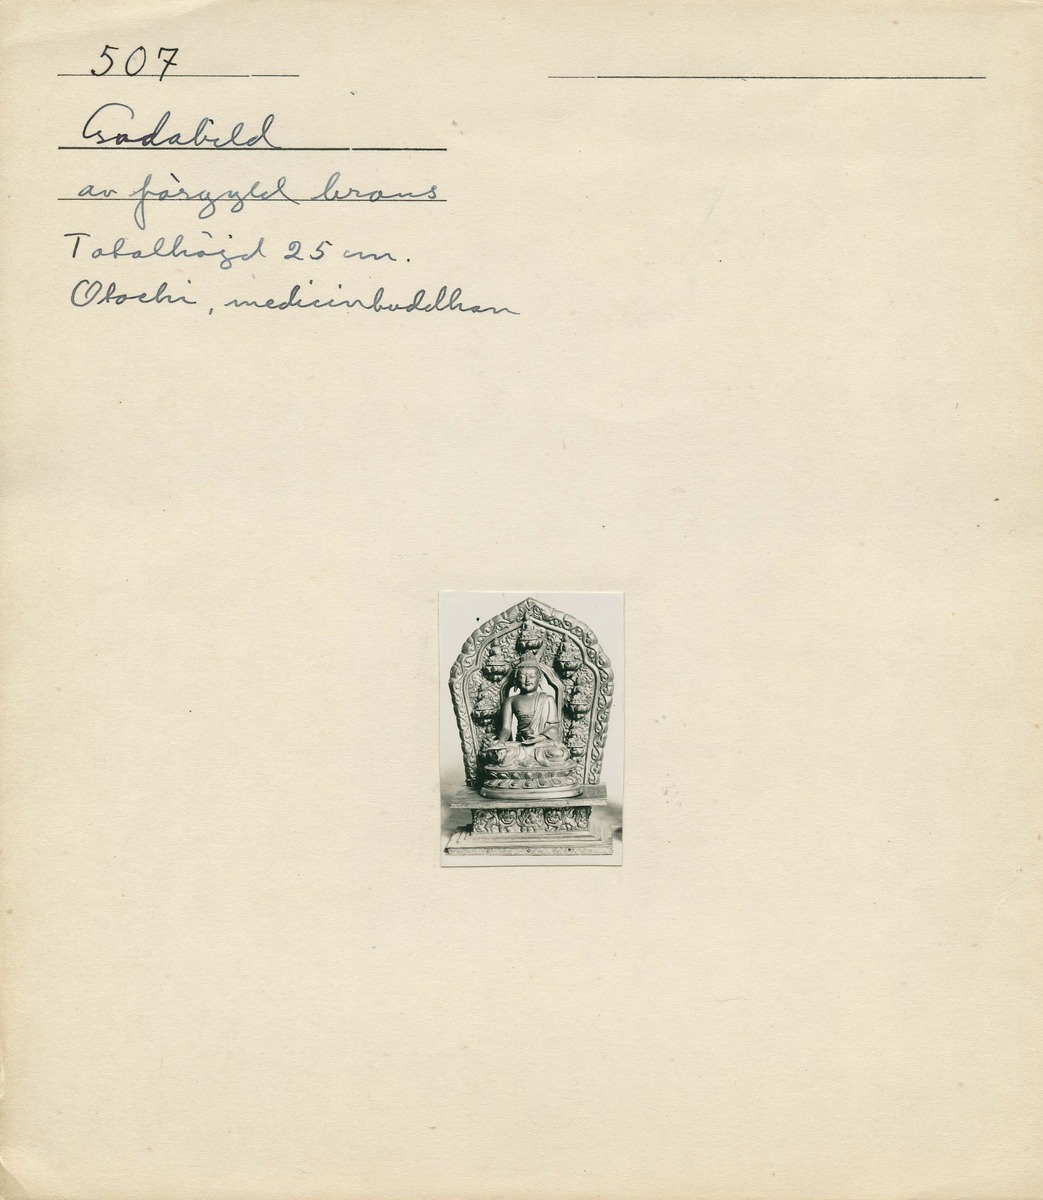 507
Gudabild
av förgyld brons
Totalhöjd 25 cm.
Otochi, medicinbuddhan